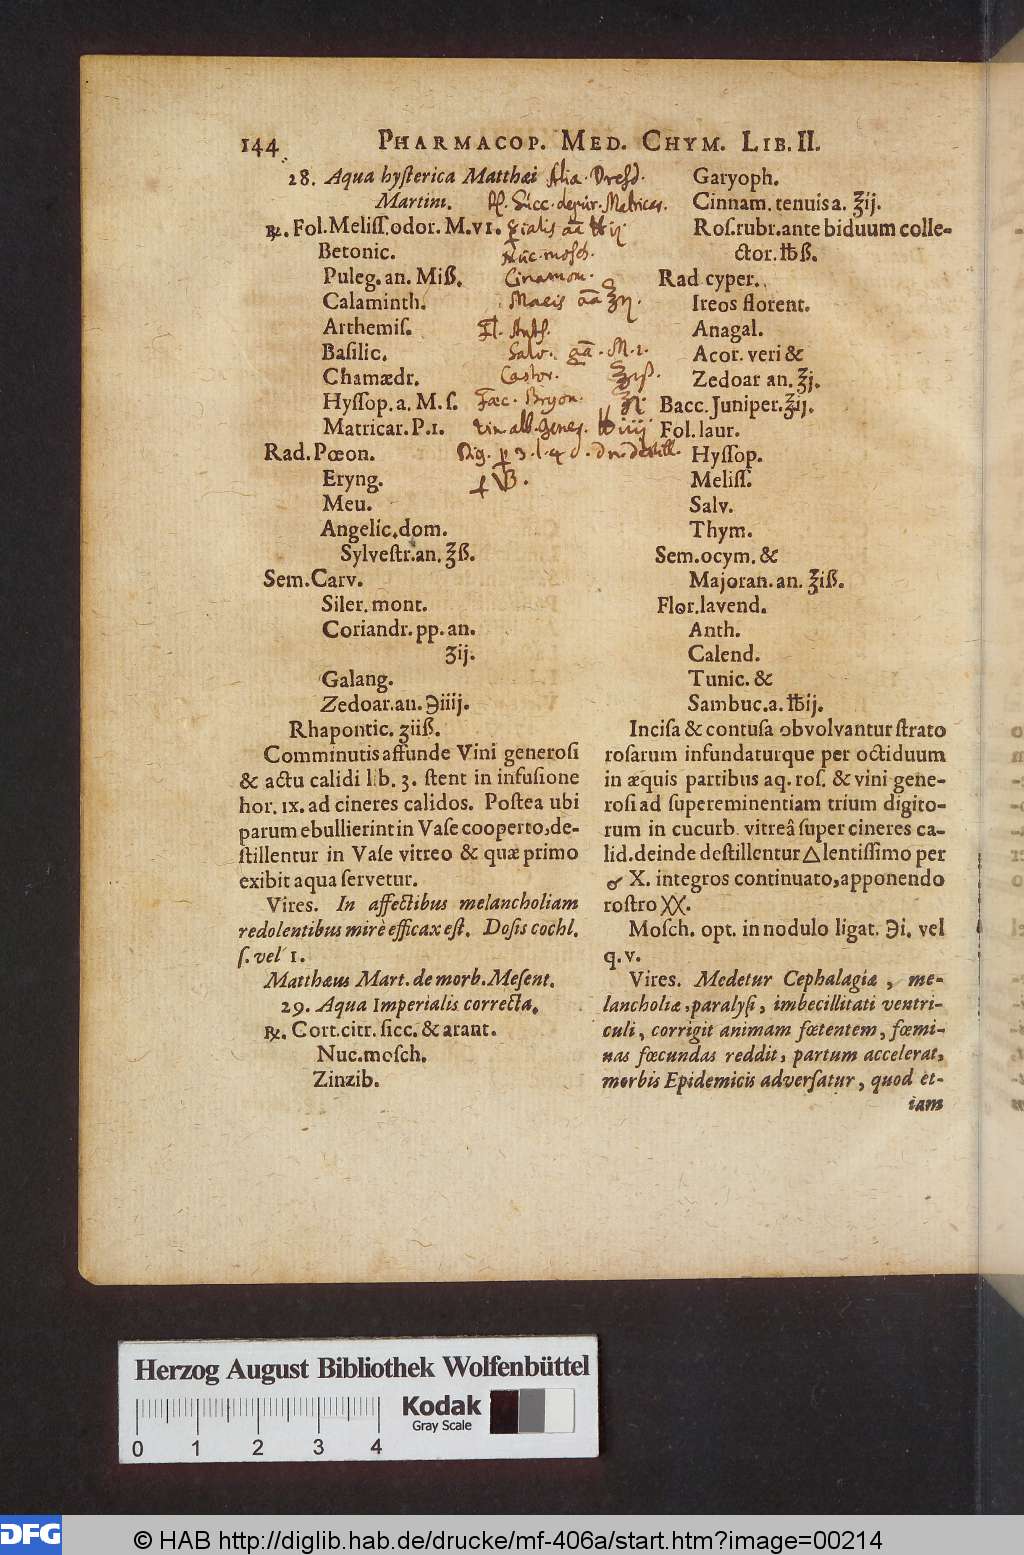 144 PHARMACOP. MED. CHYM. LIB. II.
28. Aqua hyſterica Matthæi
Martini.
℞. Fol. Meliſſ. odor. M. vi.
Betonic.
Puleg. an. Miß.
Calaminth.
Arthemiſ.
Baſilic.
Chamædr.
Hyſſop. a. M. ſ.
Matricar. P. 1.
Rad. Pœon.
Eryng.
Meu.
Angelic. dom.
Sylveſtr. an. ℥ß.
Sem. Carv.
Siler. mont.
Coriandr. pp. an.
ʒij.
Galang.
Zedoar. an. ℈iiij.
Rhapontic. ʒiiß.
Comminutis affunde Vini generoſi
& actu calidi lib. 3. ſtent in infuſione
hor. ix. ad cineres calidos. Poſtea ubi
parum ebullierint in Vaſe cooperto, de-
ſtillentur in Vaſe vitreo & quæ primo
exibit aqua ſervetur.
Vires. In affectibus melancholiam
redolentibus mirè efficax eſt. Doſis cochl.
ſ. vel 1.
Matthæus Mart. de morb. Meſent.
29. Aqua Imperialis correcta.
℞. Cort. citr. ſicc. & arant.
Nuc. moſch.
Zinzib.
alia Dresd.
Succ. depur. Matricar.
Nuc. mosch.
Cinamom.
Macis āā ℥ij.
Fl. Anth.
Salv. āā. M. 1.
Castor. ℥iß.
Fæc. Bryon.
vin. alb. gener. ℔ iiij
Dig. p 3. l. 4 d. dn. destill.
Garyoph.
Cinnam. tenuis a. ℥ij.
Roſ. rubr. ante biduum colle-
ctor. ℔ß.
Rad cyper.
Ireos florent.
Anagal.
Acor. veri &
Zedoar an. ℥j.
Bacc. Juniper. ℥ij.
Fol. laur.
Hyſſop.
Meliſſ.
Salv.
Thym.
Sem. ocym. &
Majoran. an. ℥iß.
Flor. lavend.
Anth.
Calend.
Tunic. &
Sambuc. a. ℔ij.
Inciſa & contuſa obvolvantur ſtrato
roſarum infundaturque per octiduum
in æquis partibus aq. roſ. & vini gene-
roſi ad ſupereminentiam trium digito-
rum in cucurb. vitreâ ſuper cineres ca-
lid. deinde deſtillentur △ lentiſſimo per
X. integros continuato, apponendo
roſtro XX.
Moſch. opt. in nodulo ligat. ℈i. vel
q. v.
Vires. Medetur Cephalagiæ, me-
lancholiæ, paralyſi, imbecillitati ventri-
culi, corrigit animam fœtentem, fœmi-
nas fœcundas reddit, partum accelerat,
morbis Epidemicis adverſatur, quod et-
iam
Herzog August Bibliothek Wolfenbüttel
Kodak
Gray Scale
0 1 2 3 4
DFG
© HAB http://diglib.hab.de/drucke/mf-406a/start.htm?image=00214